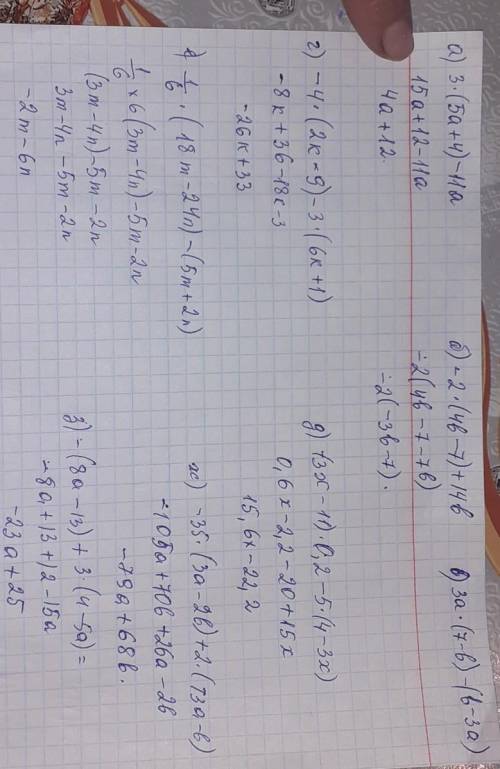 а) 3·(5a+4)-11a
15a+12-11a
4a+12.
б) -2·(4b-7)+14b
-2(4b-7-7b)
-2(-3b-7).
в) 3a·(7-b)-(b-3a)
г) -4·(2к-9)-3·(6к+1)
-8к+36-18к-3
-26к+33
д) (3x-11)·0,2-5·(4-3x)
0,6x-2,2-20+15x
15,6x-22,2
е) 1/6·(18m-24n)-(5m+2n)
1/6×6(3m-4n)-5m-2n
(3m-4n)-5m-2n
3m-4n-5m-2n
-2m-6n
ж) -35·(3a-2b)+2·(13a-b)
-105a+70b+26a-2b
-79a+68b.
з) -(8a-13)+3·(4-5a)=
-8a+13+12-15a
-23a+25